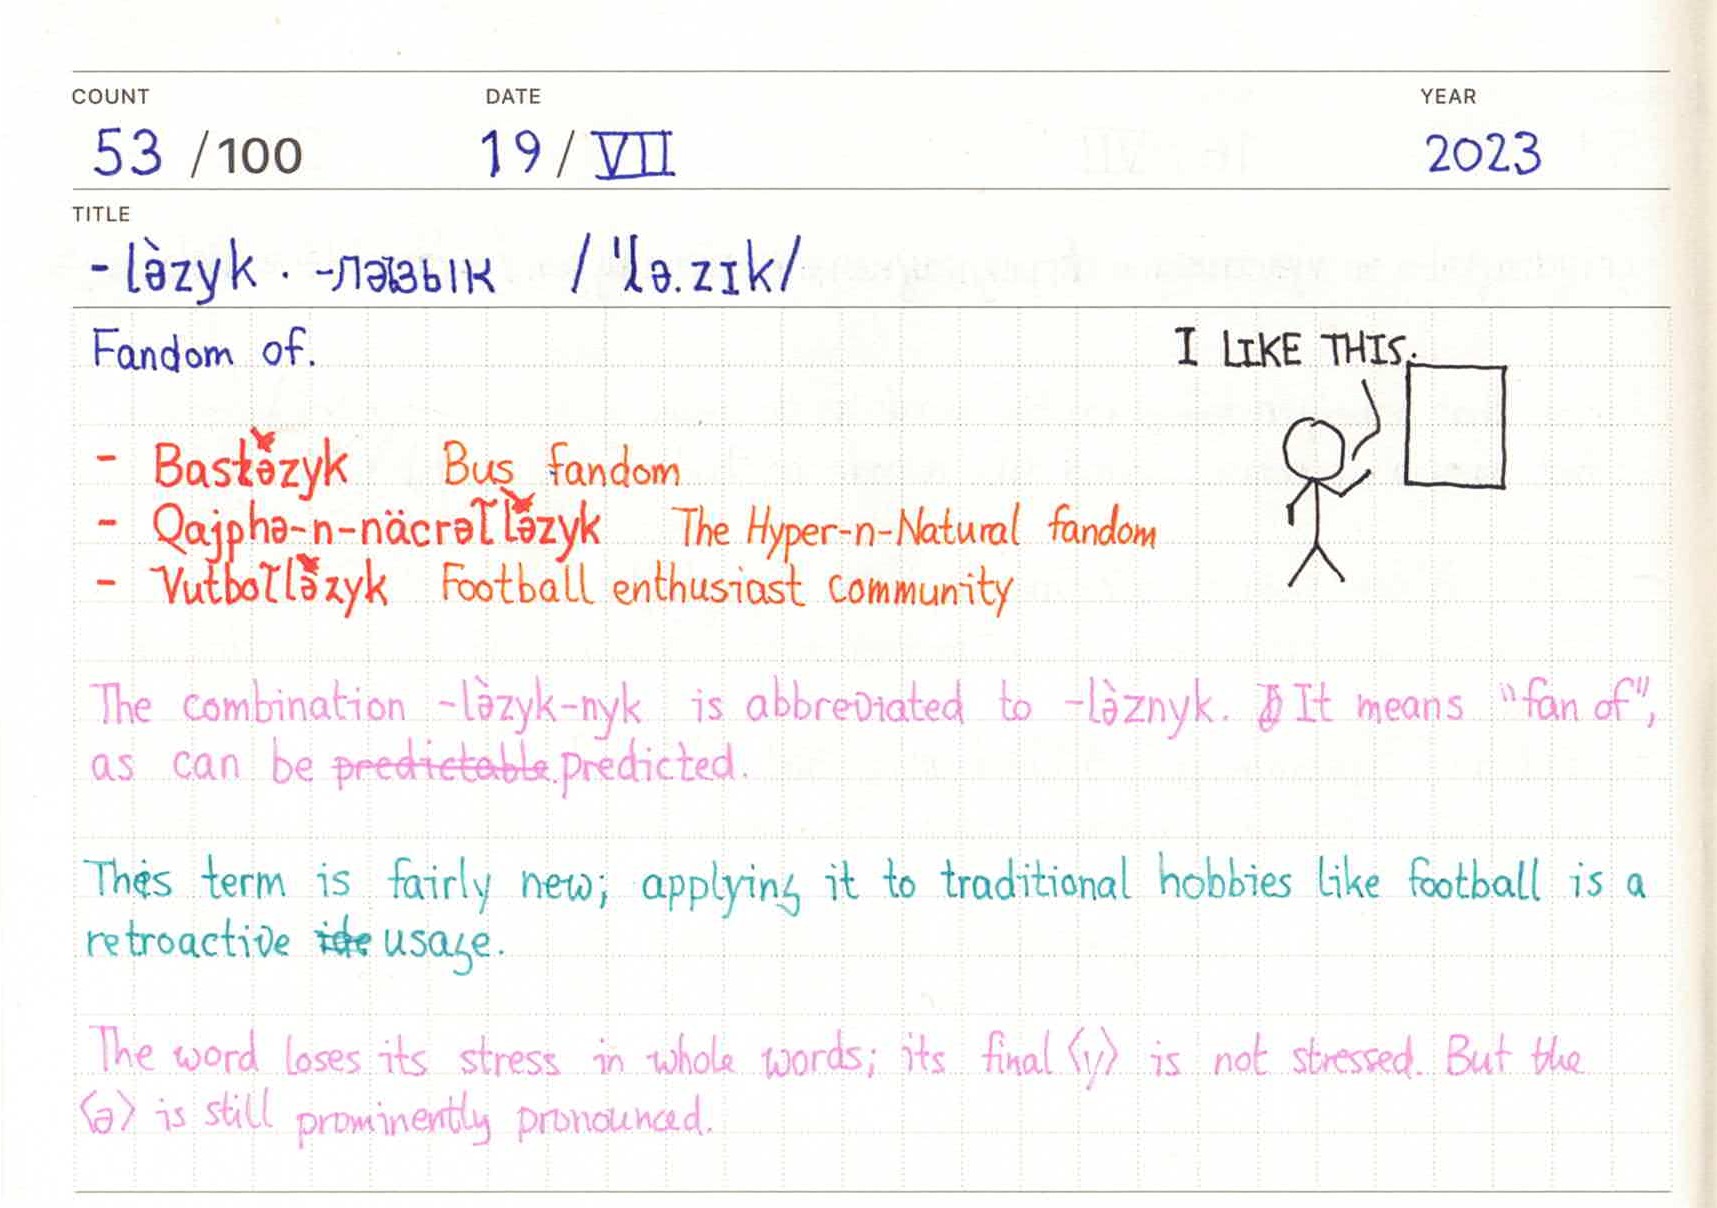 COUNT DATE YEAR
53 /100 19/VII 2023
TITLE
-lə̀zyk · -ләзык /ˈlə.zɪk/
Fandom of.
I LIKE THIS.
- Bastəzyk Bus fandom
- The Hyper-n-Natural fandom
- Football enthusiast community
The combination -lə̀zyk-nyk is abbreviated to -lə̀znyk. It means "fan of",
as can be predictable predicted.
This term is fairly new; applying it to traditional hobbies like football is a
retroactive ide usage.
The word loses its stress in whole words; its final ⟨y⟩ is not stressed. But the
⟨ə⟩ is still prominently pronounced.